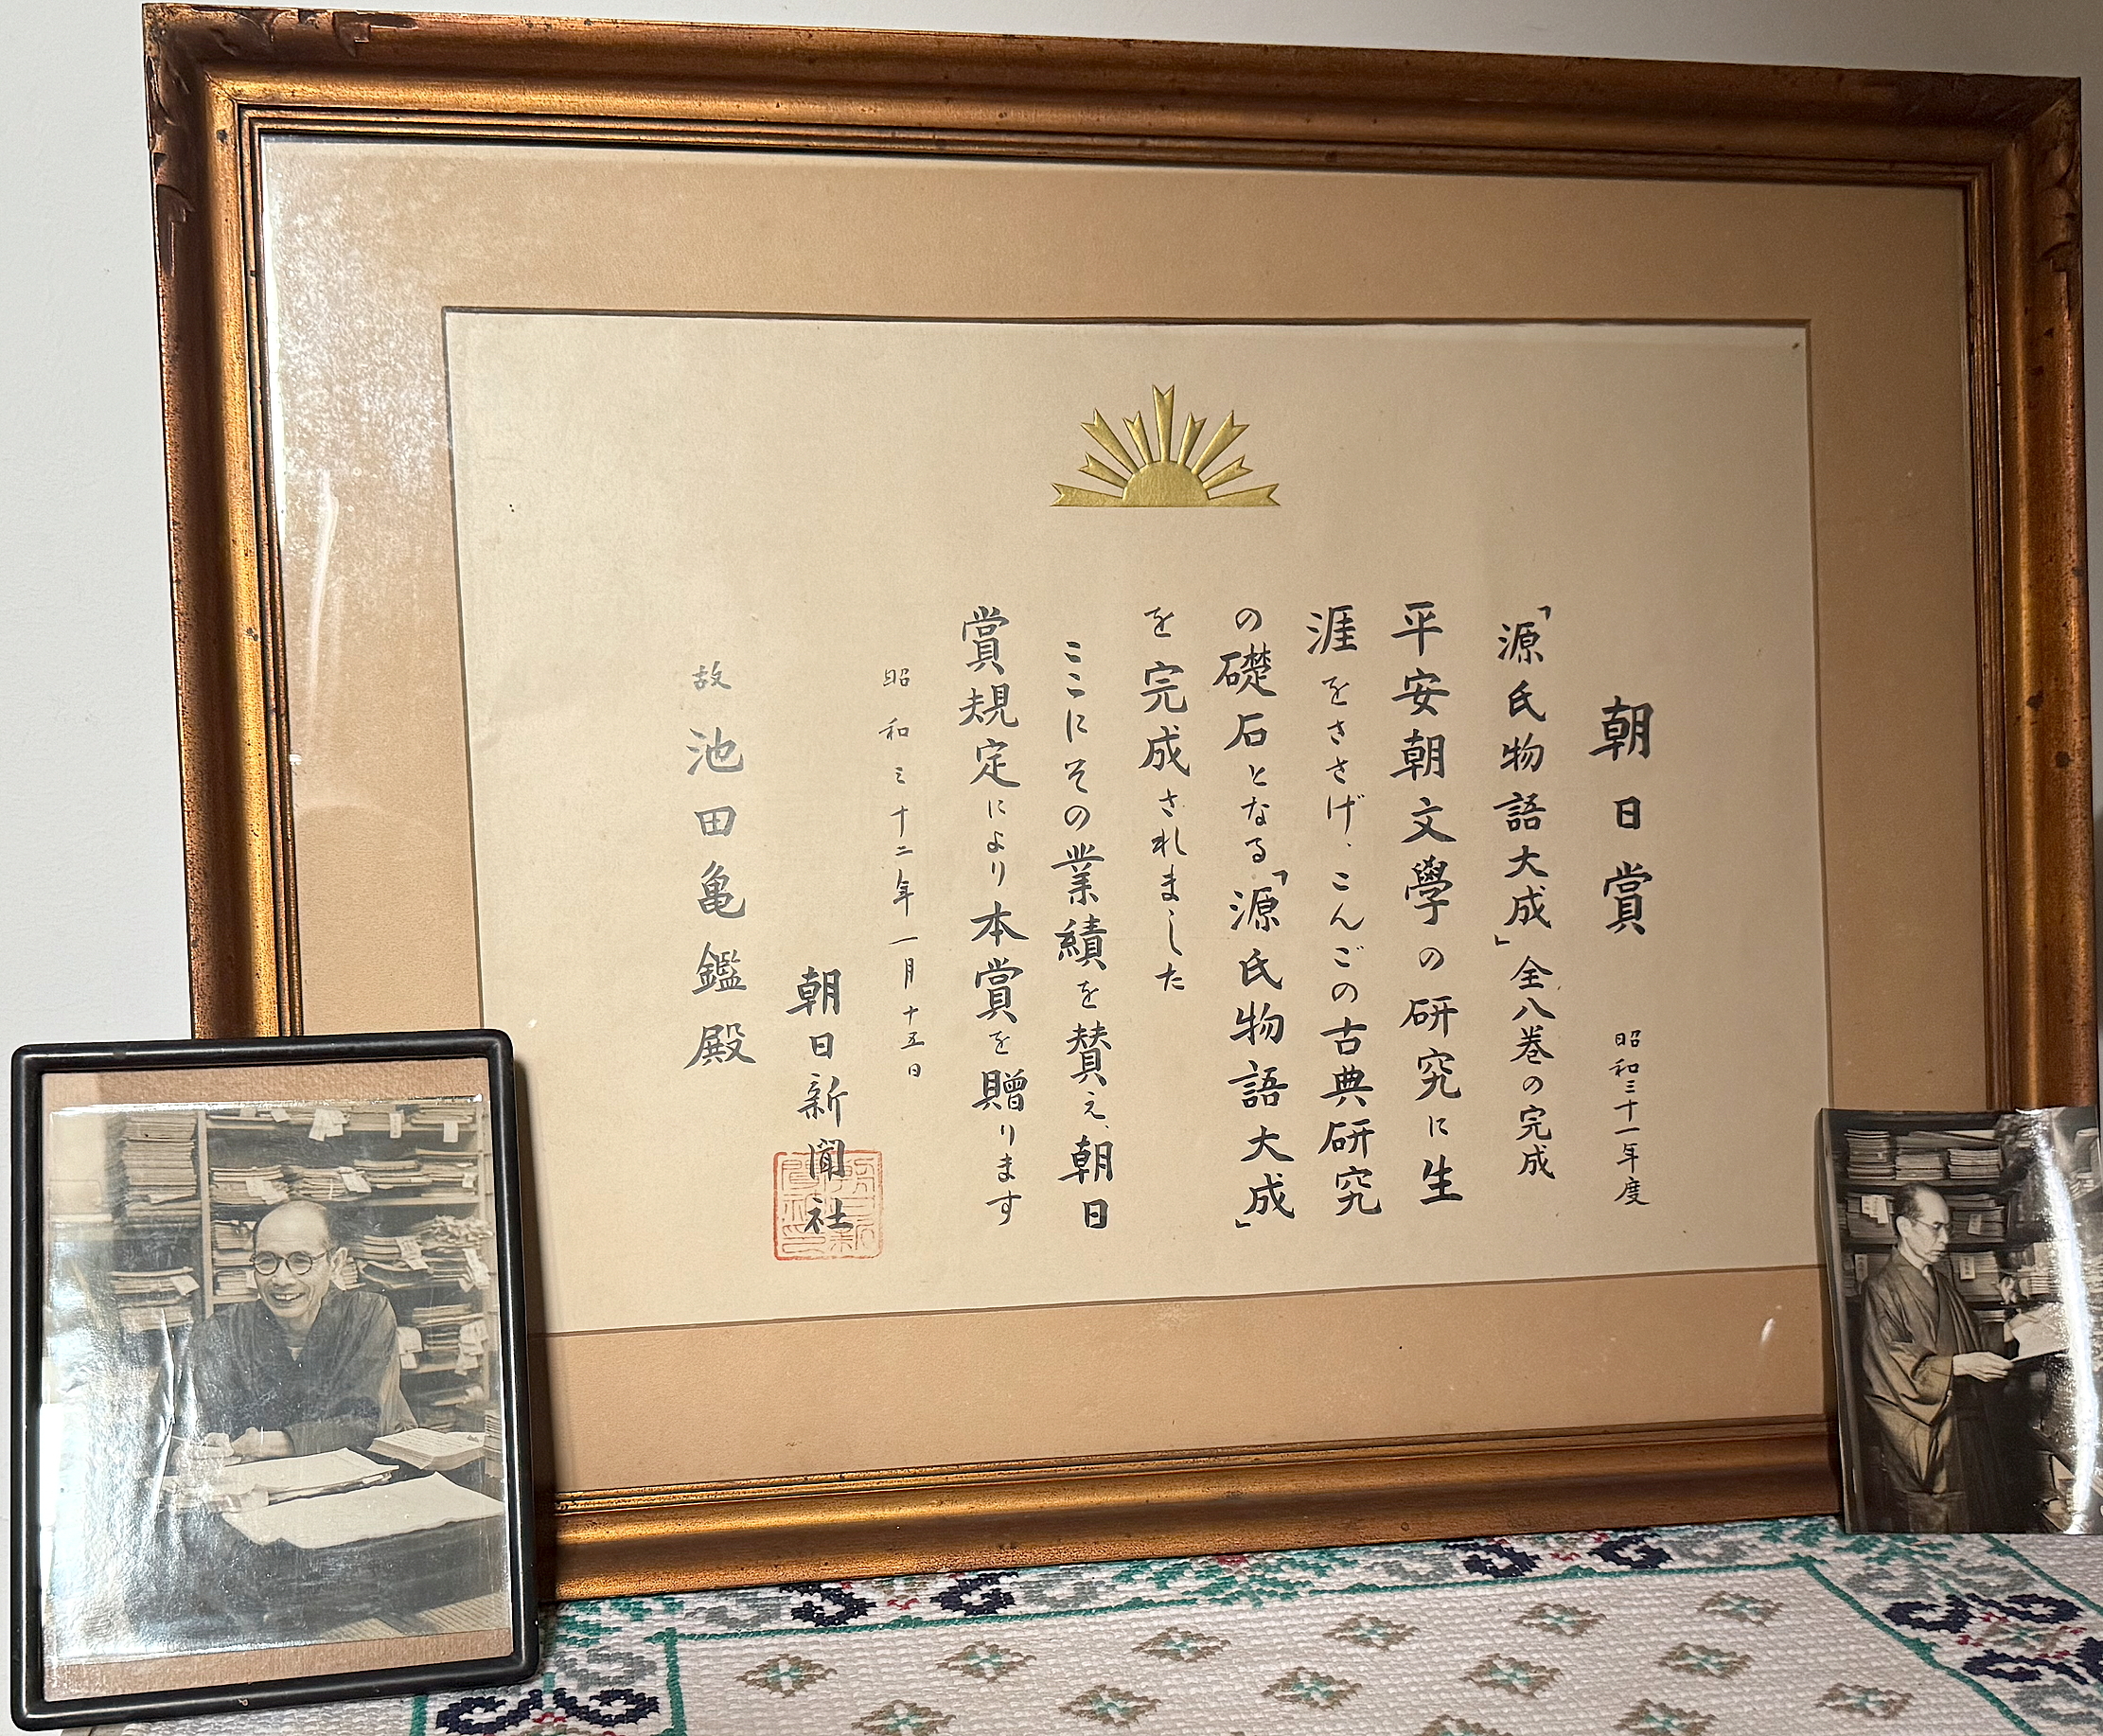 朝日賞 昭和三十一年度
「源氏物語大成」全八巻の完成
平安朝文學の研究に生
涯をささげ、こんごの古典研究
の礎石となる「源氏物語大成」
を完成されました
ここにその業績を賛え、朝日
賞規定により本賞を贈ります
昭和三十二年一月十五日
朝日新聞社
故 池田亀鑑殿